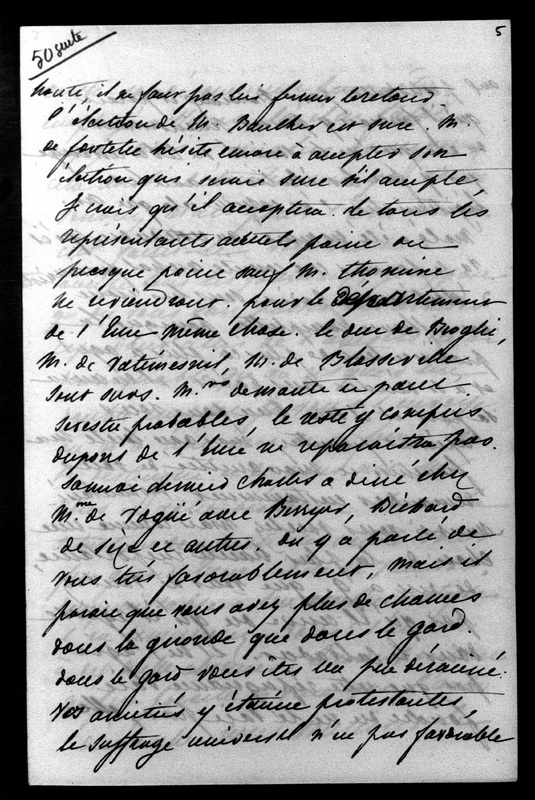 50 suite
5
honte, il ne faut pas lui fermer
l'élection de M. Bauther est sure. M.
de hésite encore à accepter son
élection qui serait sure s'il accepte,
Je crois qu'il acceptera. de tous les
représentants actuels point ou
presque point sauf M. thomine
ne reviendront. pour le Département
de l'Eure même chose. le duc de Broglie,
M. de Vatimesnil, M. de Blosseville
sont surs. M.rs demante et
probables, le reste y compris
dupont de l'Eure ne reparaitra pas.
Samedi dernier Charles a diné chez
M.me de Vogüé avec Berryer, Béchard
de Sèze et autres. On y a parlé de
vous très favorablement, mais il
parait que vous avez plus de chances
dans la gironde que dans le gard.
dans le gard vous êtes un peu déraciné.
vos amitiés y étaient protestantes,
le suffrage universel n'est pas favorable